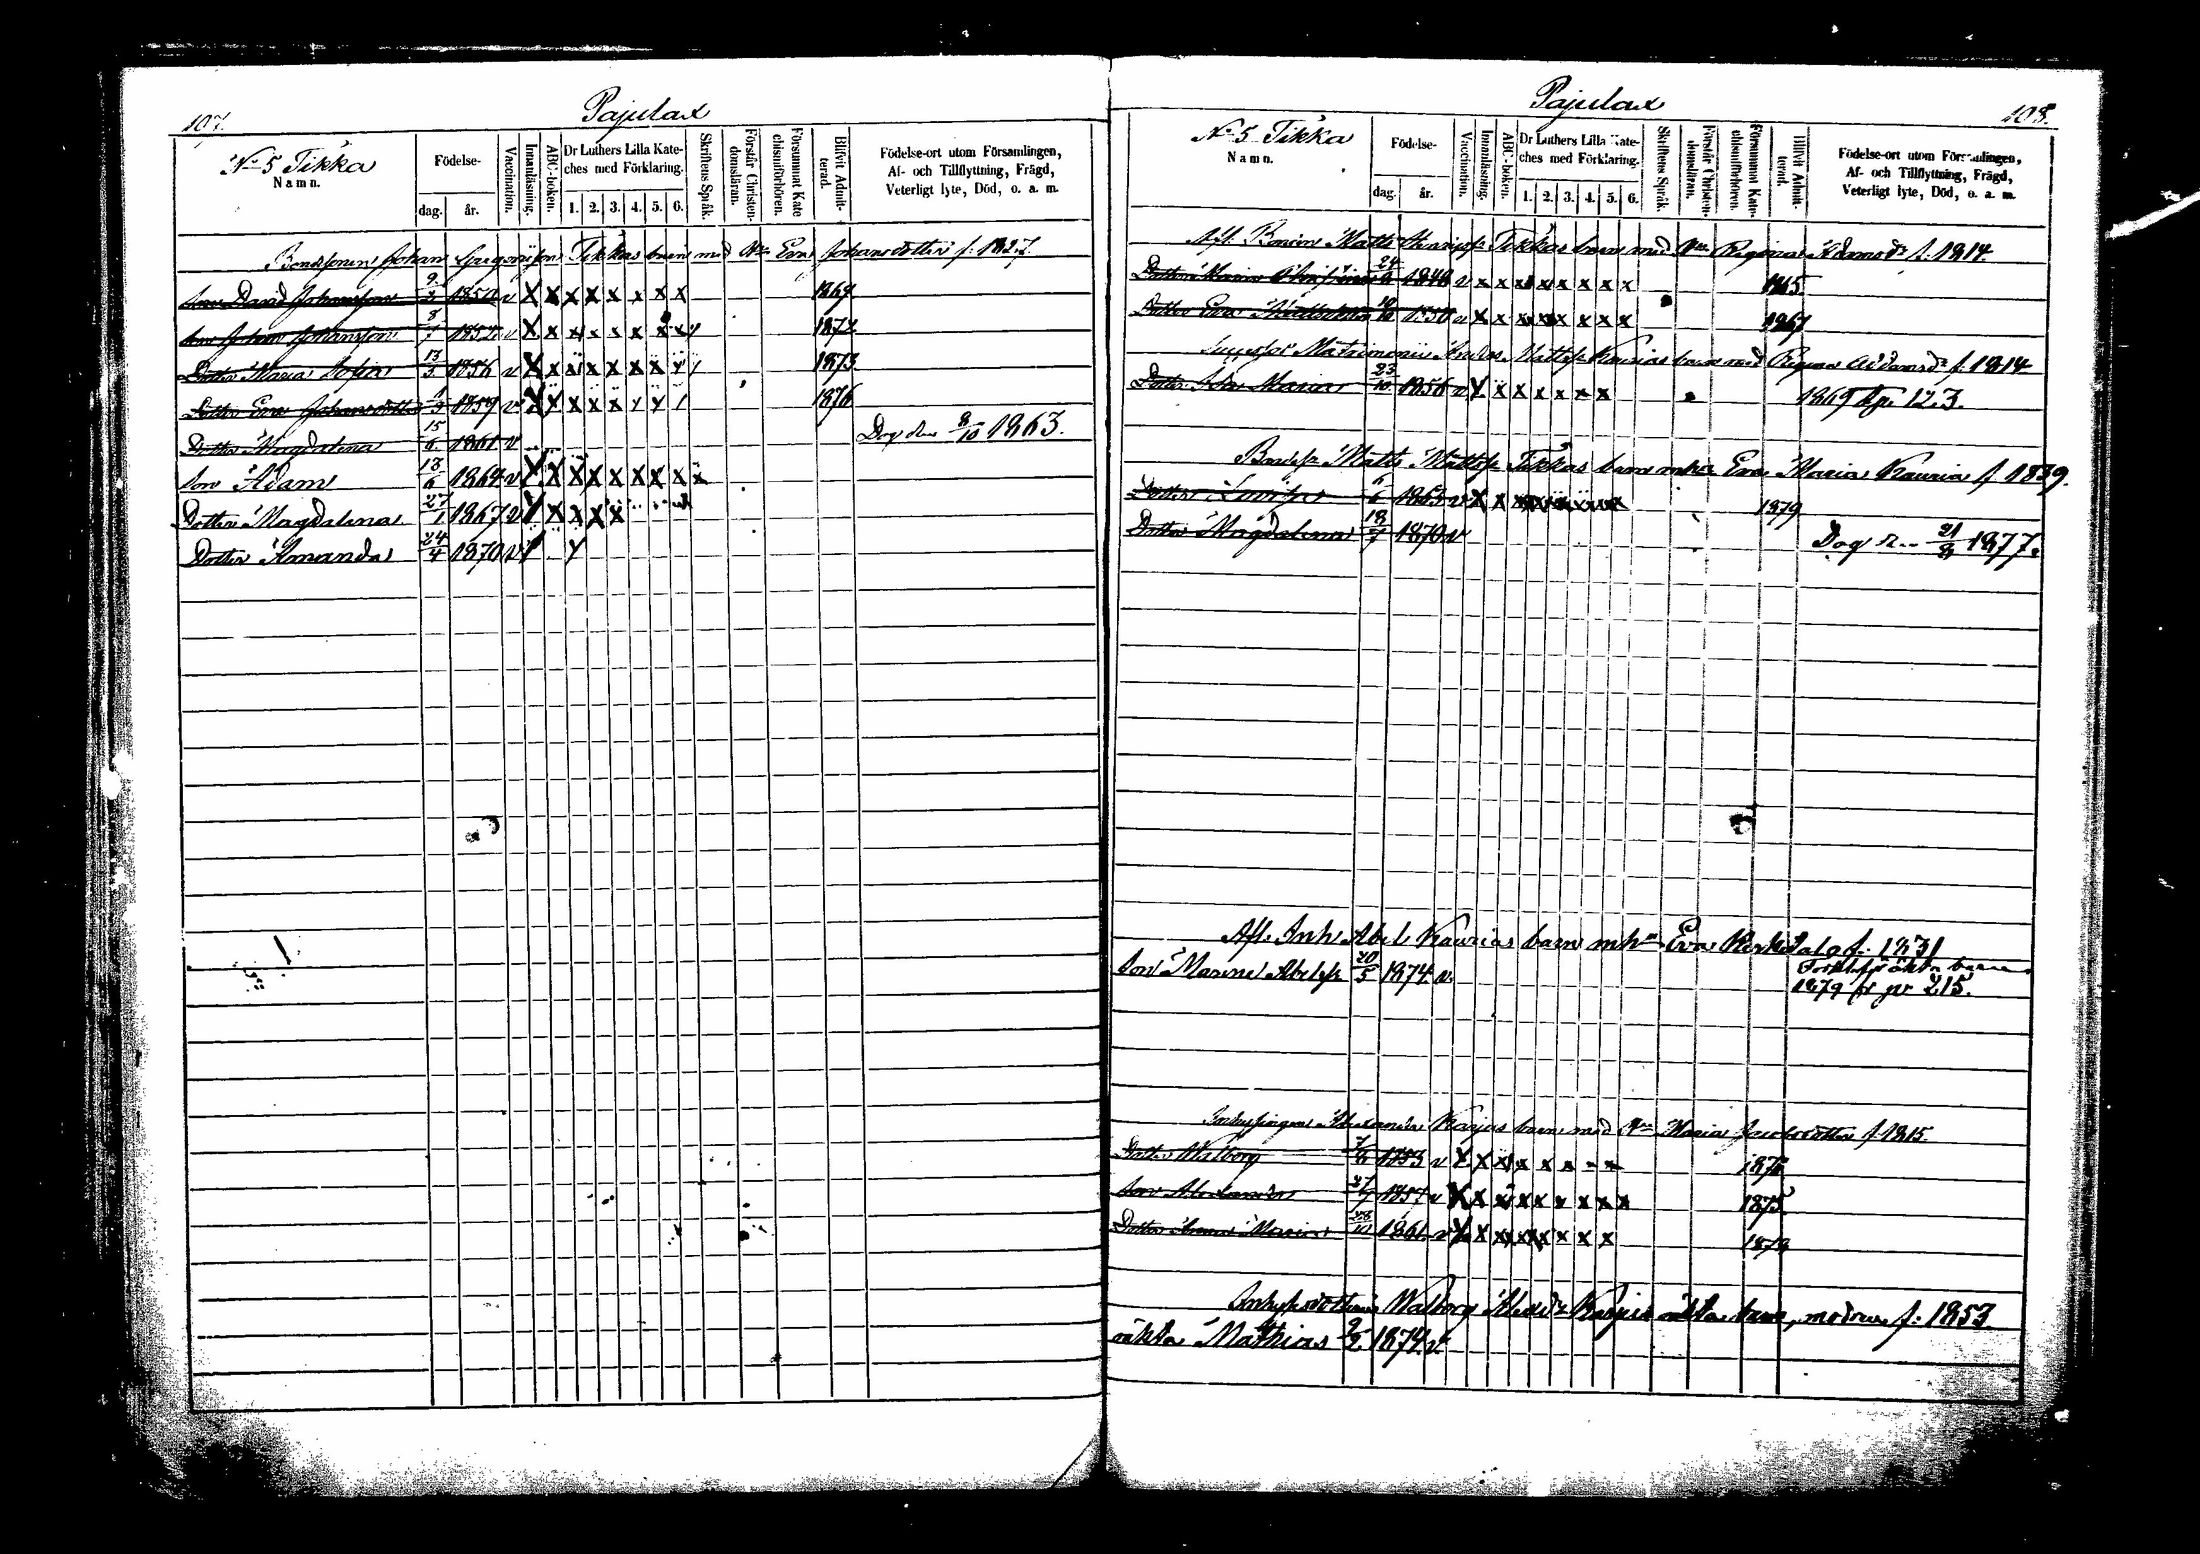 107.
Pajulax
No 5 Tikka
Namn.
Födelse-
dag.
år.
Vaccination.
Innanläsning.
ABC-boken.
Dr Luthers Lilla Kate-
ches med Förklaring.
1. 2. 3. 4. 5. 6.
Skriftens Språk.
Förstår Christen-
domsläran.
Försummat Kate
chismiförhören.
Blifvit Admit-
terad.
Födelse-ort utom Församlingen,
Af- och Tillflyttning, Frägd,
Veterligt lyte, Död, o. a. m.
Bondsonen Johan Gregorisson Tikkas barn med Eva Johansdotter f. 1827.
Son David Johansson 9/2 1850 v x x x x x x x x 1869
Son Johan Johansson 8/7 1852 v x x x x x x x x 1872
Dotter Maria Sofia 13/3 1856 v x x x x x x x 1873
Dotter Eva Johansdotter 1/3 1859 v x x x x x 1876
Dotter Magdalena 15/6 1861 v Dog den 8/10 1863.
Son Adam 13/6 1864 v x x x x x x x x x
Dotter Magdalena 27/1 1867 v x x x x
Dotter Amanda 24/4 1870 v
108.
Pajulax
No 5 Tikka
Namn.
Födelse-
dag.
år.
Vaccination.
Innanläsning.
ABC-boken.
Dr Luthers Lilla Kate-
ches med Förklaring.
1. 2. 3. 4. 5. 6.
Skriftens Språk.
Förstår Christen-
domsläran.
Försummat Kate-
chismiförhören.
Blifvit Admit-
terad.
Födelse-ort utom Församlingen,
Af- och Tillflyttning, Frägd,
Veterligt lyte, Död, o. a. m.
Afl. Bonden Matts Tikkas barn med Regina Adamsdr f. 1814
Dotter Maria 24 1848 v x x x x x x x x 1865
Dotter Eva 10/10 1850 v x x x x x x x x 1867
Matrimonii Anders Mattss. Kaurias barn med Regina Adamsdr f. 1814
Dotter Maria 23/10 1856 v x x x x x x x 1869 12.3.
Bondes. Matts Mattss. Tikkas barn m h Eva Maria Kauria f 1839.
Dotter Lovisa 6/6 1863 v x x x x x x x x 1879
Dotter Magdalena 18/7 1870 v Dog d. 21/8 1877.
Afl. Inh. Abel Kaurias barn m h Eva f. 1831
Son Abelss. 20/5 1874 v.
barn
1879 215.
Inhysingen Alexander Karjus barn med Maria Jacobsdotter f. 1815.
Dotter Walborg 7/8 1853 v x x x x x x x x 1876
Son Alexander 27/7 1857 v x x x x x x x x x 1875
Dotter Anna Maria 28/10 1861 v x x x x x x x x 1879
Walborg Alexdr barn, modren f. 1853.
oäkta Mathias 9/2 1874 v.